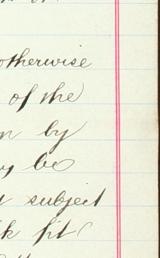 otherwise
of the
by
be
subject
fit